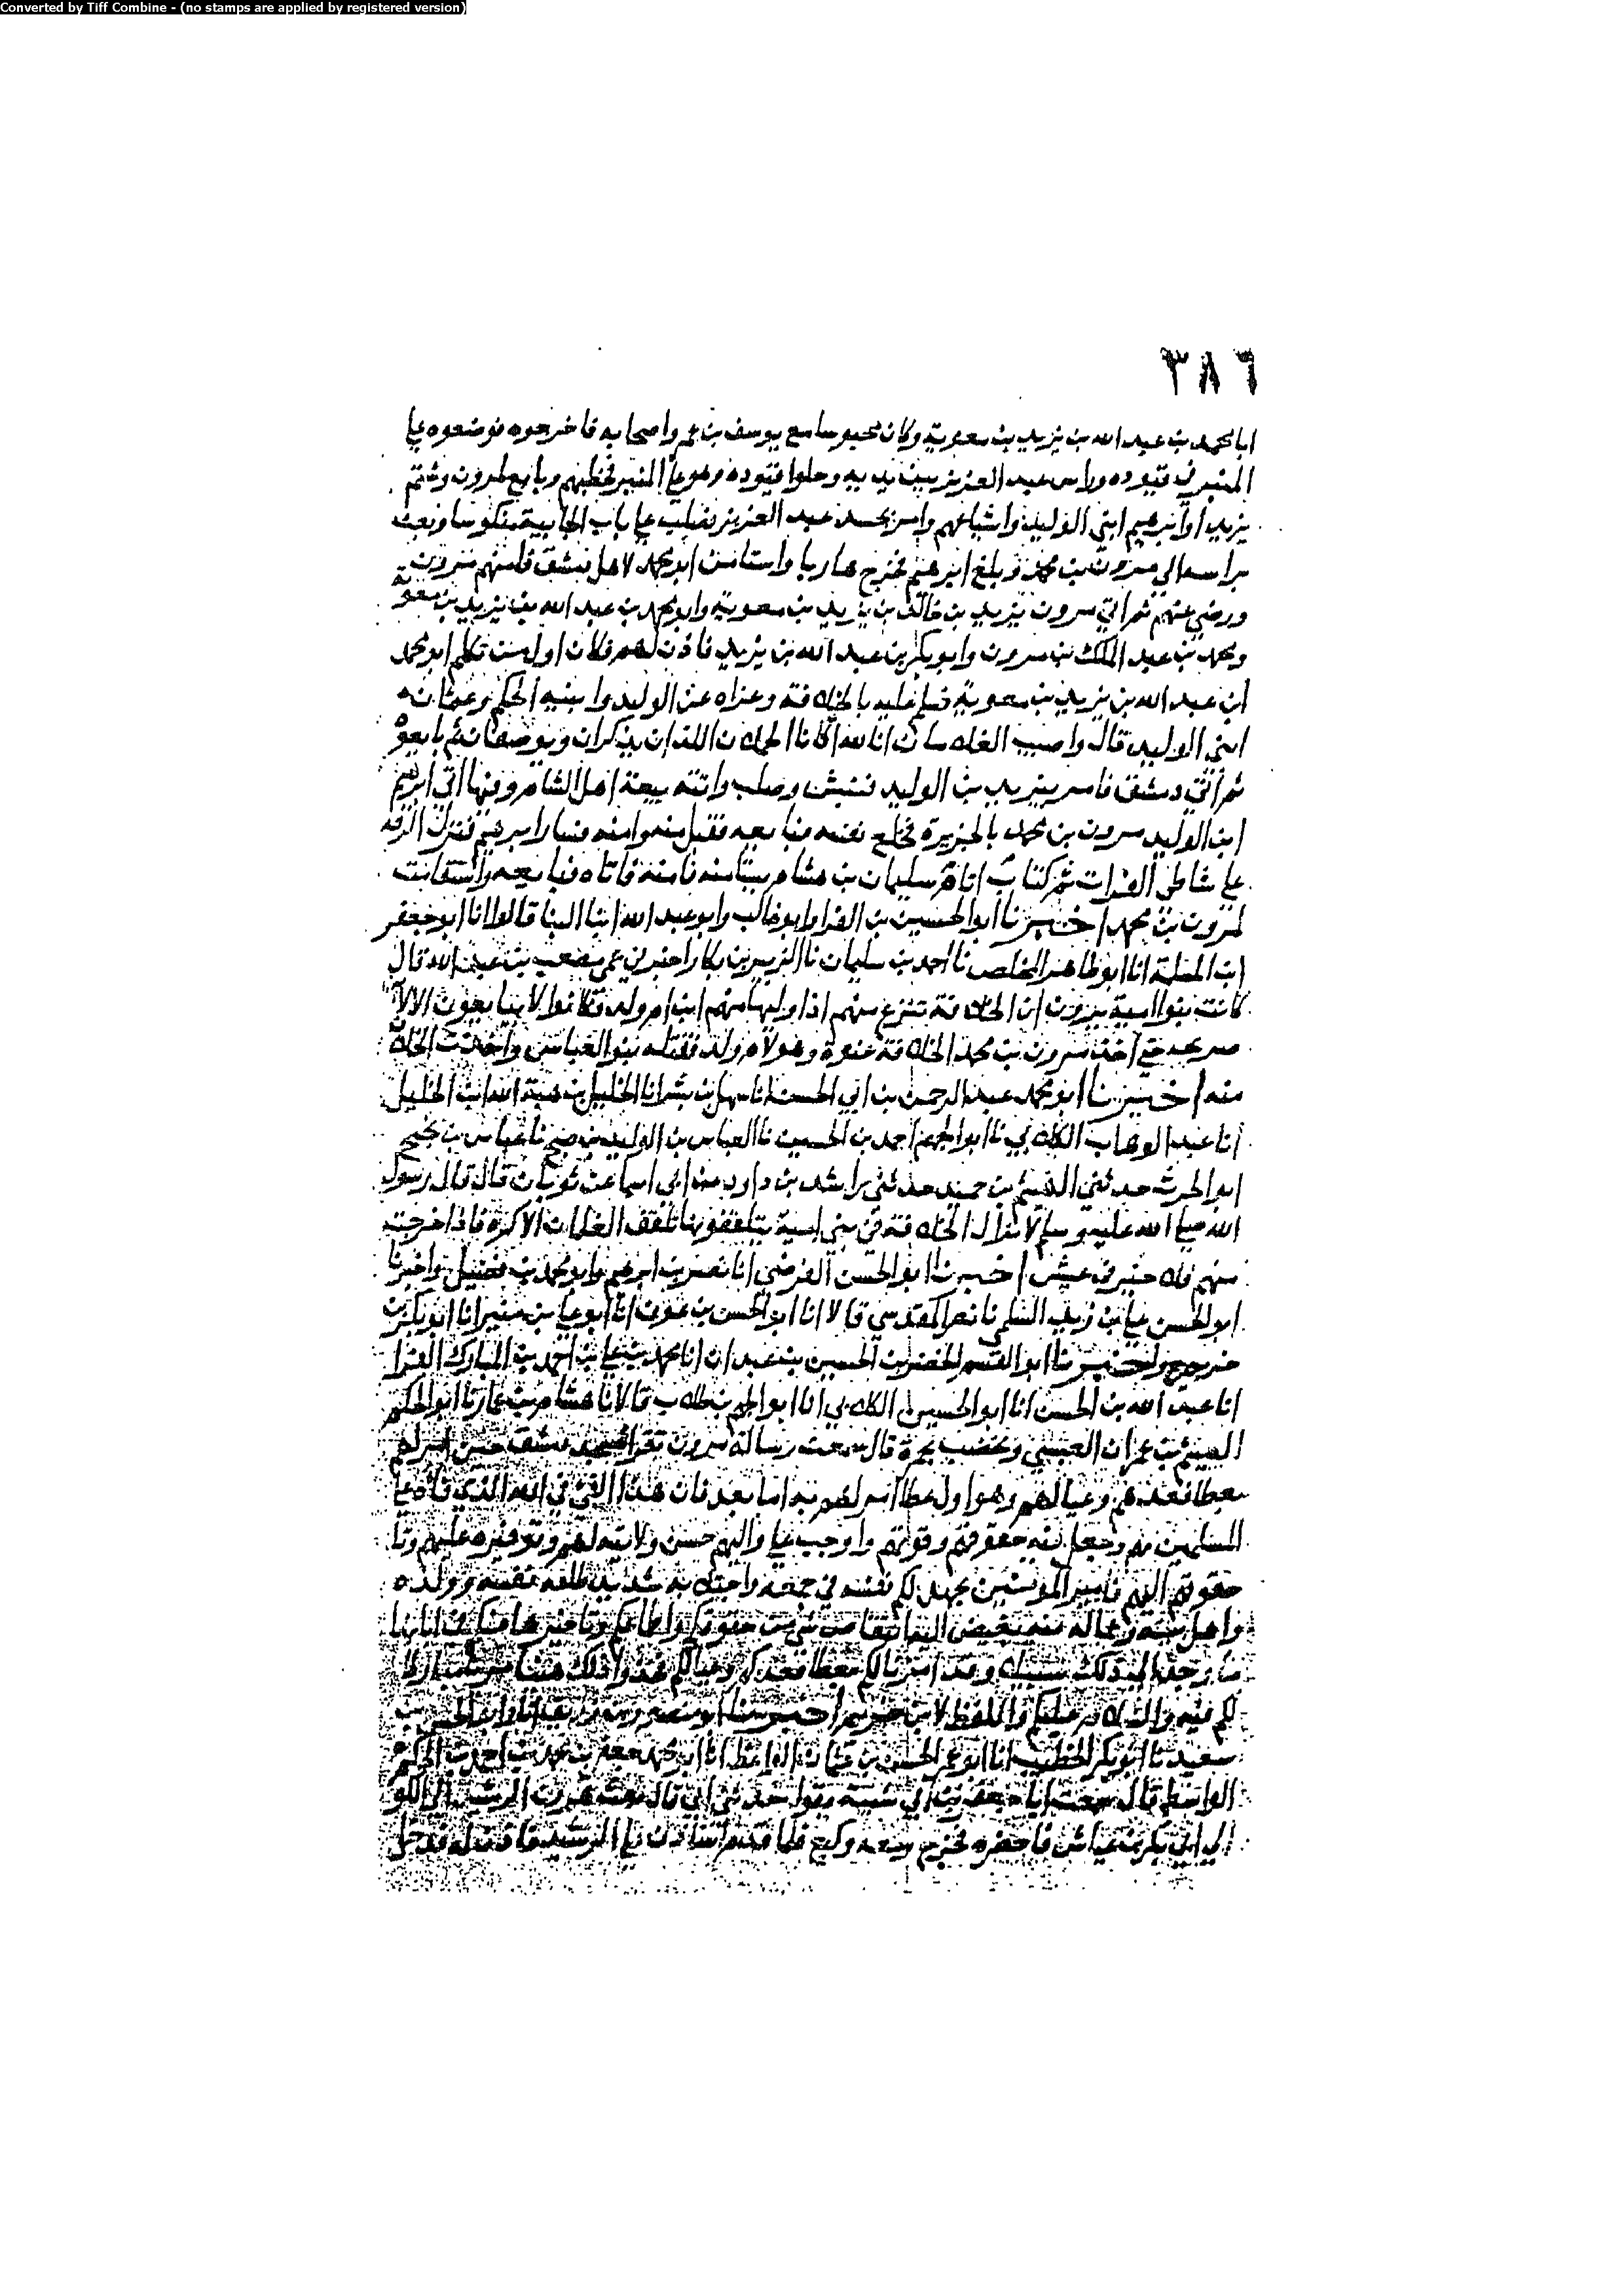 Converted by Tiff Combine - (no stamps are applied by registered version)
٣٨٦
ابا محمد بن عبد الله بن يزيد بن معوية وكان محبوسا مع يوسف بن عمر واصحابه فاخرجوه فوضعوه على
المنبر في قيوده وراس عبد العزيز بين يديه وحلوا قيوده وهو على المنبر فخطبهم وبايع لمرون وشتم
يزيد وابرهيم ابني الوليد واشياعهم وامر بجسد عبد العزيز فصلب على باب الجابية منكوسا وبعث
براسه الى مرون بن محمد وبلغ ابرهيم فخرج هاربا واستامن ابو محمد لاهل دمشق فامنهم مرون
ورضي عنهم ثم اتى مرون يزيد بن خالد بن يزيد بن معوية وابو محمد بن عبد الله بن يزيد بن معوية
ومحمد بن عبد الملك بن مرون وابو بكر بن عبد الله بن يزيد فاذن لهم فكان اول من تكلم ابو محمد
ابن عبد الله بن يزيد بن معوية فسلم عليه بالخلافة وعزاه عن الوليد وابنيه الحكم وعثمان
ابني الوليد قال واصيب الغلامان انا لله ان كانا الحملان اللذان يذكران ويوصفان ثم بايعوه
ثم اتى دمشق فامر بيزيد بن الوليد فنبش وصلب واتته بيعة اهل الشام وفيها اتى ابرهيم
ابن الوليد مرون بن محمد بالجزيرة فخلع نفسه فبايعه فقبل منه وامنه فسار ابرهيم فنزل الرقة
على شاطى الفرات ثم كتاب اتاه سليمان بن هشام يستامنه فامنه فاتاه فبايعه واستقامت
لمرون بن محمد اخبرنا ابو الحسين بن الفرا وابو غالب وابو عبد الله ابنا البنا قالوا انا ابو جعفر
ابن المسلمة انا ابو طاهر المخلص نا احمد بن سليمان نا الزبير بن بكار اخبرني عمي مصعب بن عبد الله قال
كانت بنو امية يرون ان الخلافة تنزع منهم اذا وليها منهم ابن ام ولد فكانوا لا يبايعون الا لابن
صريحه حتى اخذ مرون بن محمد الخلافة عنوة وهو لام ولد فقتله بنو العباس واخذت الخلافة
منه اخبرنا ابو محمد عبد الرحمن بن ابي الحسن انا سهل بن بشر انا الخليل بن هبة الله بن الخليل
انا عبد الوهاب الكلابي نا ابو الجهم احمد بن الحسين نا العباس بن الوليد بن صبح نا عباس بن نجيح
ابو الحرث حدثني الهيثم بن حميد حدثني راشد بن داود عن ابي اسما عن ثوبان قال قال رسول
الله صلى الله عليه وسلم لا تزال الخلافة في بني امية يتلقفونها تلقف الغلمان الاكرة فاذا خرجت
منهم فلا خير في عيش اخبرنا ابو الحسن الفرضي انا نصر بن ابرهيم وابو محمد بن فضيل واخبرنا
ابو الحسن علي بن زيد السلمي نا نصر المقدسي قالا انا ابو الحسن بن عوف انا ابو علي بن منير انا ابو بكر بن
خريم ح واخبرنا ابو القسم الخضر بن الحسين بن عبدان انا محمد بن علي بن احمد بن المبارك الفرا
انا عبد الله بن الحسن انا ابو الحسين الكلابي انا ابو الجهم بن طلاب قالا نا هشام بن عمار نا ابو الحكم
الهيثم بن عمران العبسي ويخضب بحمرة قال سمعت رسالة مرون تقرا بمسجد دمشق حين امر لهم
بعطا فعدهم وعيالهم وهو اول عطا امر لهم به اما بعد فان هذا الفي في الله الذي فاه على
المسلمين منه وجعل فيه حقوقهم وقوتهم واوجب على واليهم حسن ولايته لهم وتوفيره عليهم
حقوقهم اليهم فامير المومنين يجهد لكم نفسه في جمعه واجتلابه شديد ظلفه نفسه وولده
واهل بيته وعماله عنه بغيض اليه من حقوقكم واطماعكم وتاخيرها عنكم في ابانها
ما وجد الى ذلك سبيلا وقد امرنا لكم بعطا
لكم فيه والسلام عليكم واللفظ لابن خريم اخبرنا ابو منصور بن زريق انا وابو الحسن بن
سعيد نا ابو بكر الخطيب انا ابو عمر الحسن بن عثمان الواعظ انا ابو محمد جعفر بن محمد بن احمد بن الحكم
الواسطي قال سمعت ابا جعفر بن ابي شيبة يقول حدثني ابي قال بعث هرون الرشيد الى الكوفة
الى ابي بكر بن عياش فاحضره فخرج ومعه وكيع فلما قدم استاذن على الرشيد فاذن له فدخل